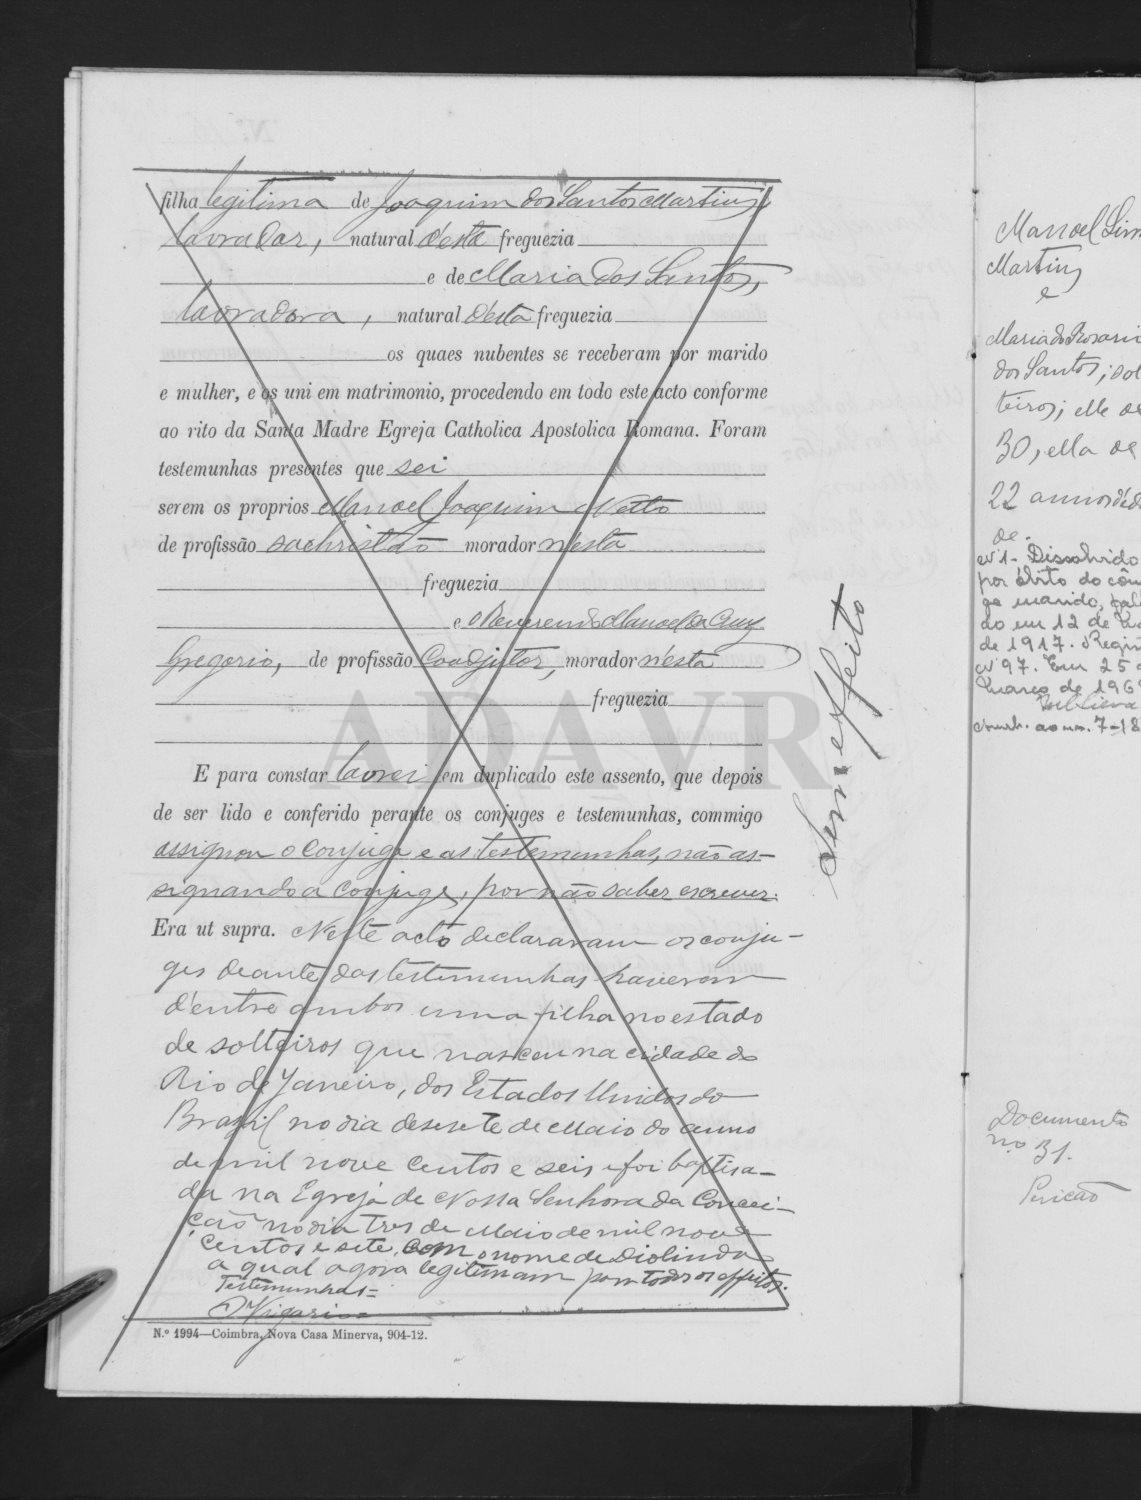 filha legitima de Joaquim dos Santos Martins,
lavrador, natural d'esta freguezia
e de Maria dos Santos,
lavradora, natural d'esta freguezia
os quaes nubentes se receberam por marido
e mulher, e os uni em matrimonio, procedendo em todo este acto conforme
ao rito da Santa Madre Egreja Catholica Apostolica Romana. Foram
testemunhas presentes que sei
serem os proprios Manoel Joaquim Netto
de profissão sachristão morador n'esta
freguezia
e o Reverendo Manoel da Cruz
Gregorio, de profissão Coadjutor, morador n'esta
freguezia
E para constar lavrei em duplicado este assento, que depois
de ser lido e conferido perante os conjuges e testemunhas, commigo
assignou o conjuge e as testemunhas, não as-
signando a conjuge, por não saber escrever.
Era ut supra. Neste acto declararam os conju-
ges deante das testemunhas haverem
d'entre ambos uma filha no estado
de solteiros que nasceu na cidade do
Rio de Janeiro, dos Estados Unidos do
Brazil no dia desesete de Maio do anno
de mil nove centos e seis e foi baptisa-
da na Egreja de Nossa Senhora da Concei-
ção no dia tres de Maio de mil nove
centos e sete, com o nome de Diolinda
a qual agora legitimam para todos os effeitos.
Testemunhas=
O Vigario=
N.º 1994—Coimbra, Nova Casa Minerva, 904-12.
Sem effeito
ADAVR
Manoel Sim
Martins
e
Maria do Rosari
dos Santos; sol
teiros; elle de
30, ella de
22 annos d'ida
de.
Nº1- Dissolvido
por óbito do côn
ge marido,
do em 12 de
de 1917.
Nº 97. Em 25
Março de 196
7-18
Documento
nº 31.